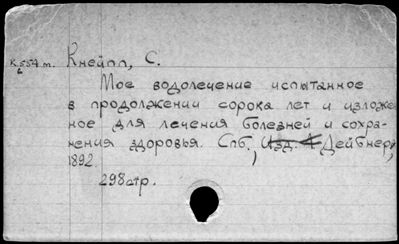 К.554 т. Кнейпп, С.
6
Мое водолечение испытанное
в продолжении сорока лет и изложен-
ное для лечения болезней и сохра-
нения здоровья. Спб., Изд. А. Дейбнер,
1892.
298стр.